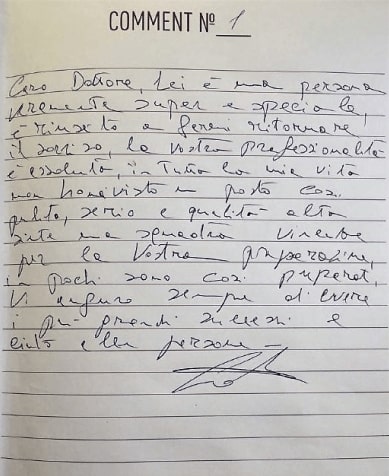 COMMENT Nº 1
Caro Dottore, Lei è una persona
veramente super e speciale,
è riuscito a farmi ritornare
il sorriso, la vostra professionalità
è assoluta, in tutta la mia vita
non ho mai visto un posto così
pulito, serio e qualità alta
siete una squadra vincente
per la Vostra preparazione,
in pochi sono così preparati,
Vi auguro sempre di avere
i più grandi successi e
persone –